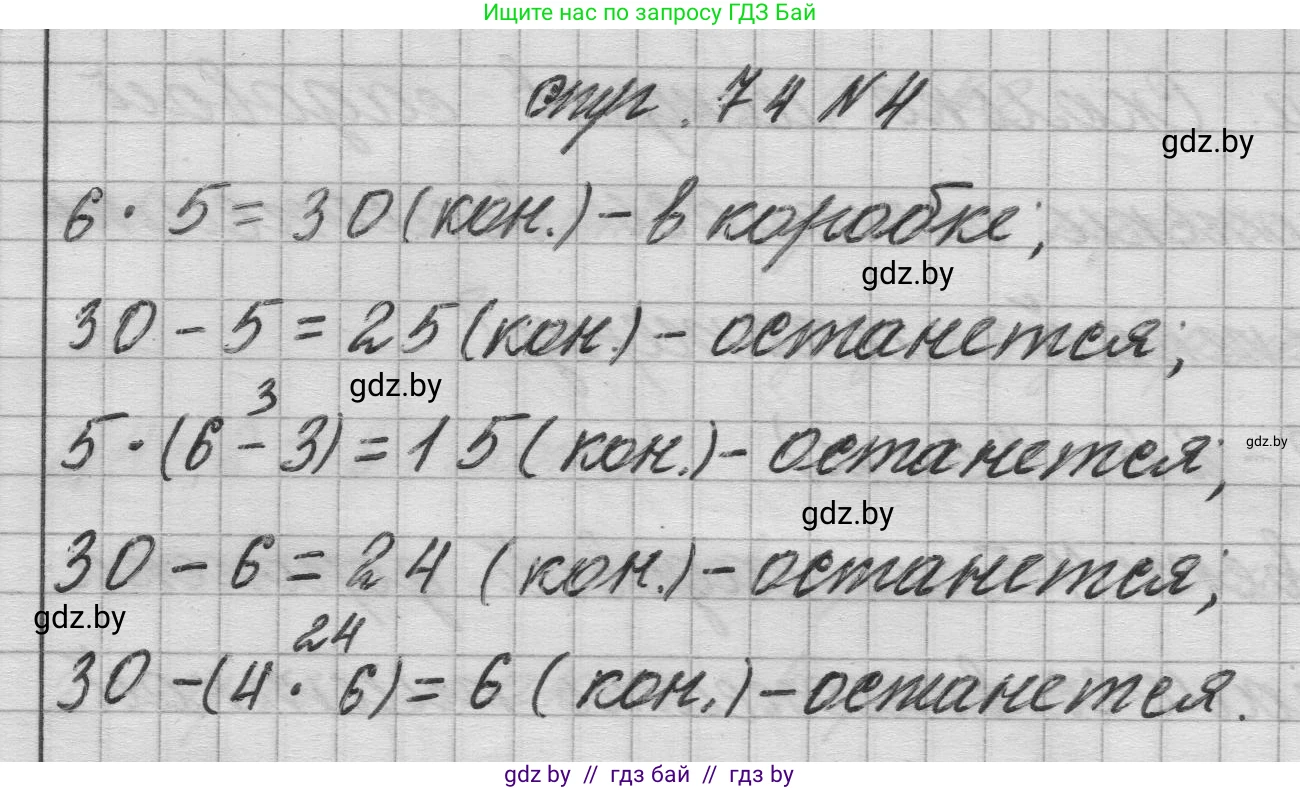 Ищите нас по запросу ГДЗ Бай
стр. 74 №4
gdz.by
6 · 5 = 30 (кон.) – в коробке;
gdz.by
30 – 5 = 25 (кон.) – останется;
3
gdz.by
5 · (6 – 3) = 15 (кон.) – останется;
gdz.by
gdz.by
30 – 6 = 24 (кон.) – останется;
gdz.by
24
30 – (4 · 6) = 6 (кон.) – останется.
gdz by // гдз бай // гдз by